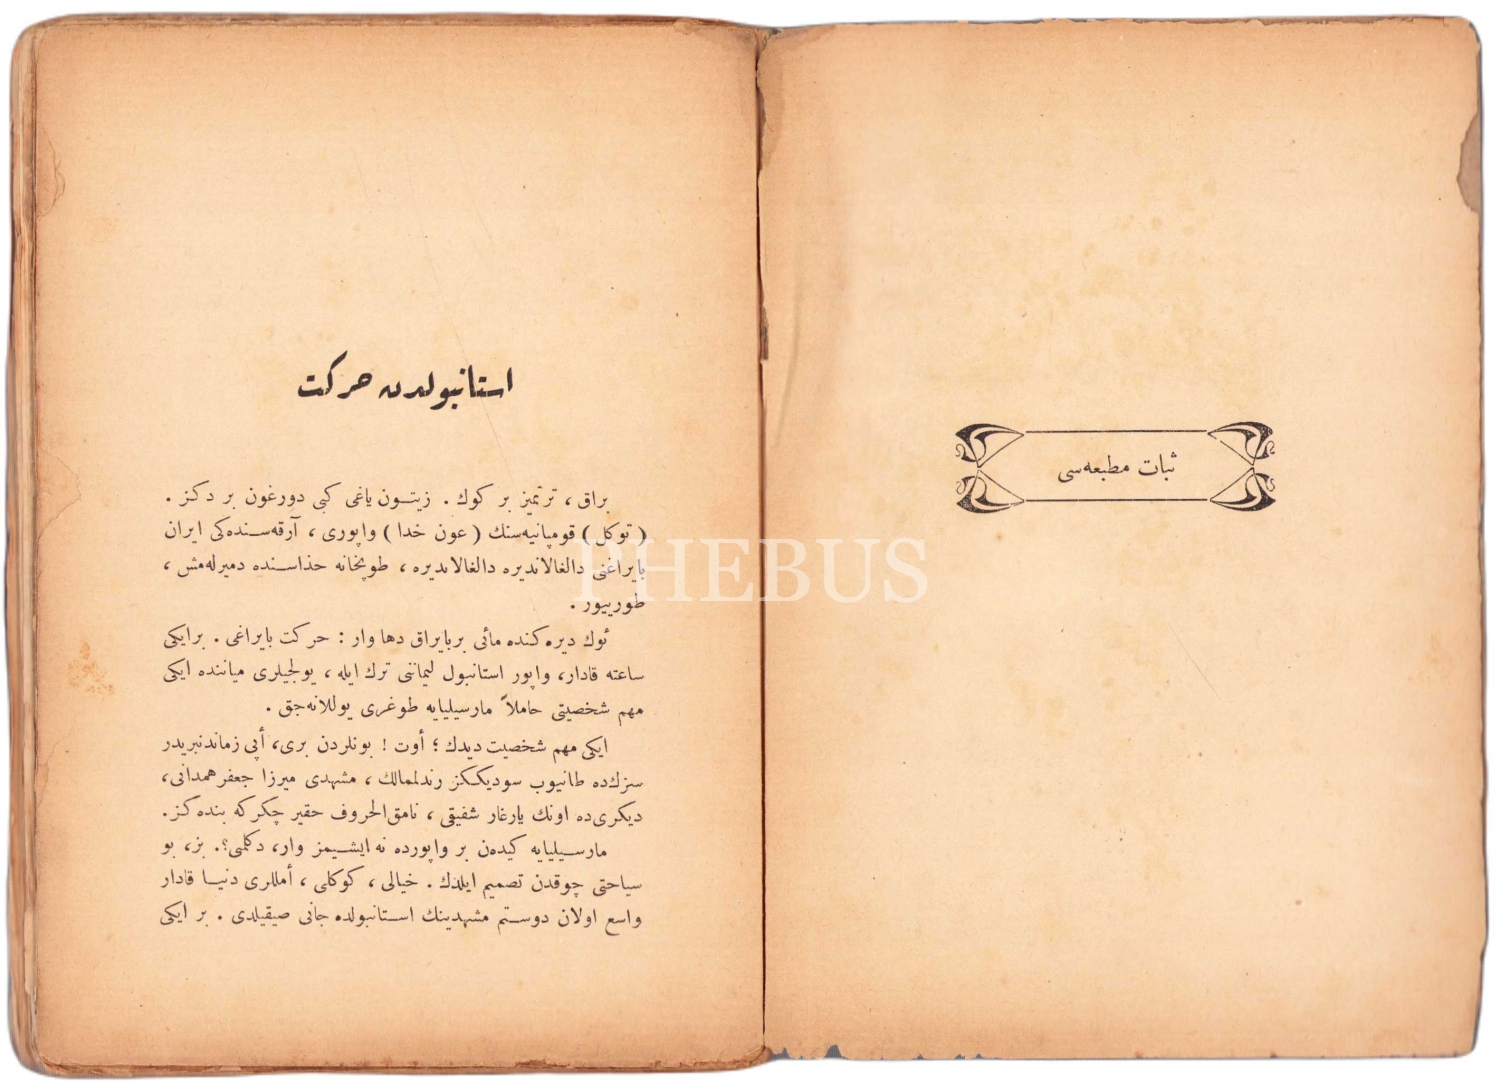 ثبات مطبعه‌سی
استانبولدن حركت
براق ، ترتميز بر كوك . زيتون ياغی كبی دورغون بر دكز .
( توكل ) قومپانيه‌سنك ( عون خدا ) واپوری ، آرقه‌سنده‌كی ايران
بايراغنی دالغالانديره دالغالانديره ، طوپخانه حذاسنده دميرله‌مش ،
طورييور .
ئوك ديره‌كنده مائی بربايراق دها وار : حركت بايراغی . برايكی
ساعته قادار، واپور استانبول ليماننی ترك ايله ، يولجيلری مياننده ايكی
مهم شخصيتی حاملاً مارسيليايه طوغری يوللانه‌جق .
ايكی مهم شخصيت ديدك ؛ أوت ! بونلردن بری، أپی زماندنبريدر
سزكده طانيوب سوديككز رندلممالك ، مشهدی ميرزا جعفر همدانی،
ديكری‌ده اونك يارغار شفيقی ، نامق‌الحروف حقير چكركه بنده‌كز.
مارسيليايه كيده‌ن بر واپورده نه ايشيمز وار، دكلمی؟. بز، بو
سياحتی چوقدن تصميم ايلدك . خيالی ، كوكلی ، أمللری دنيا قادار
واسع اولان دوستم مشهدينك استانبولده جانی صيقيلدی . بر ايكی
PHEBUS